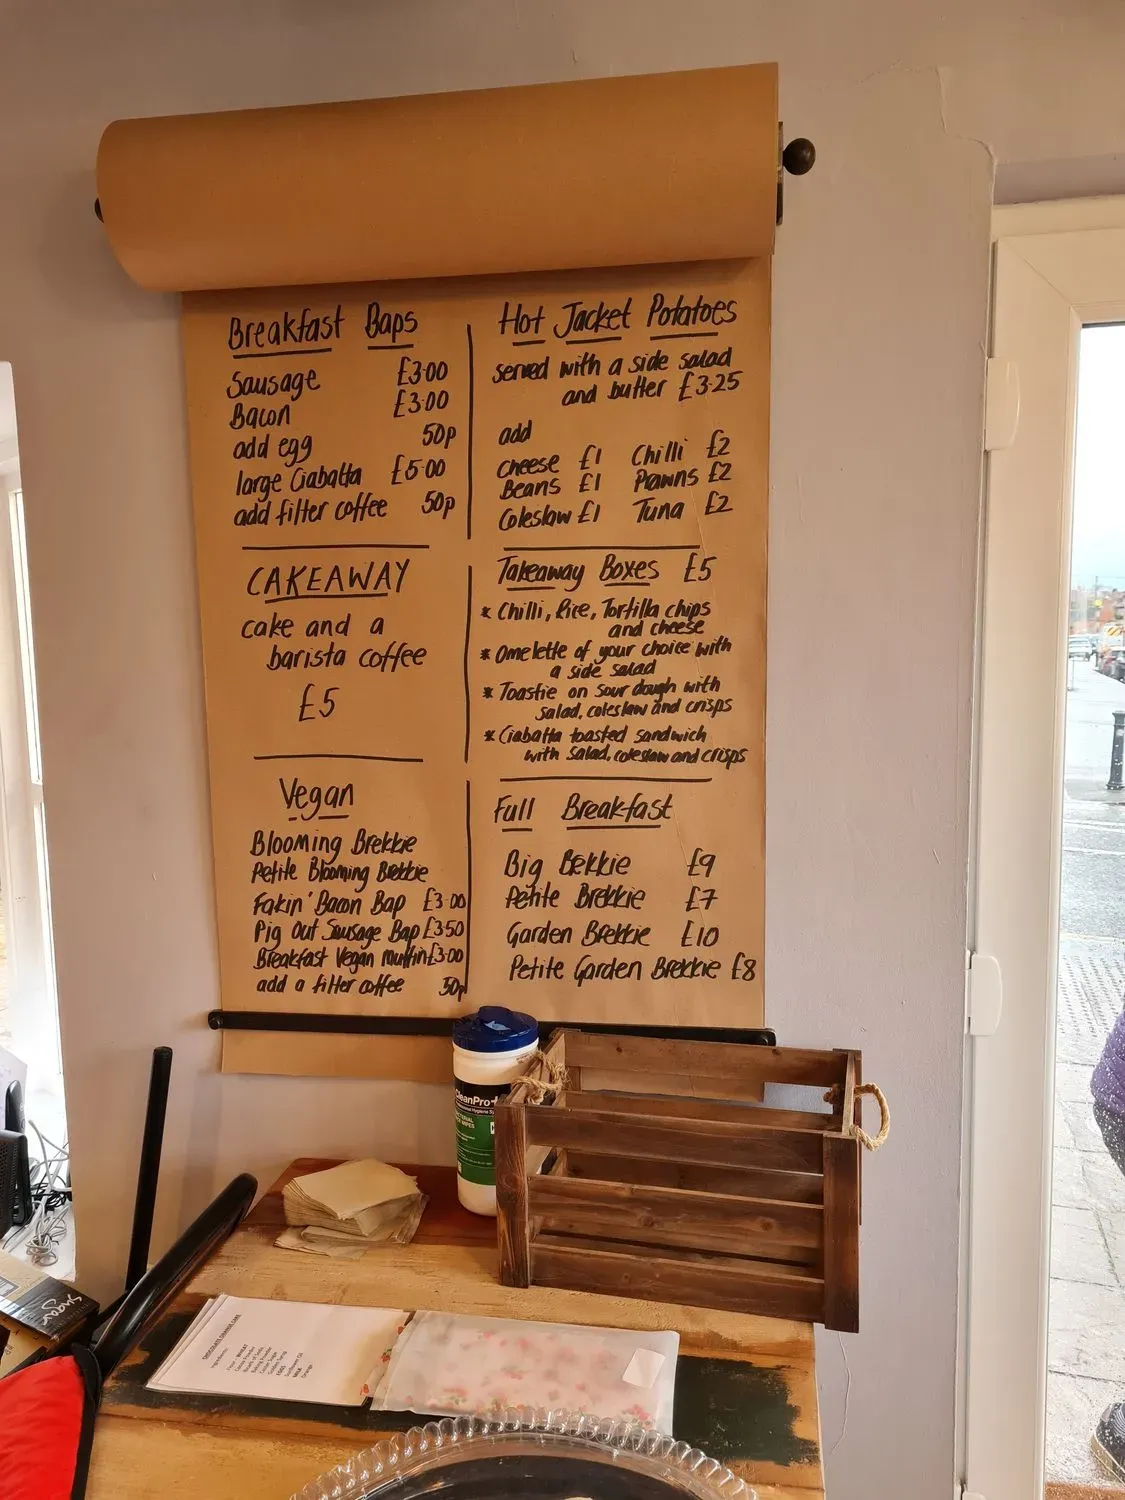 Breakfast Baps
Sausage £3.00
Bacon £3.00
add egg 50p
large Ciabatta £5.00
add filter coffee 50p
CAKEAWAY
cake and a
barista coffee
£5
Vegan
Blooming Brekkie
Petite Blooming Brekkie
Fakin' Bacon Bap £3.00
Pig Out Sausage Bap £3.50
Breakfast Vegan muffin £3.00
add a filter coffee 50p
Hot Jacket Potatoes
served with a side salad
and butter £3.25
add
cheese £1 Chilli £2
Beans £1 Prawns £2
Coleslaw £1 Tuna £2
Takeaway Boxes £5
* Chilli, Rice, Tortilla chips
and cheese
* Omelette of your choice with
a side salad
* Toastie on sour dough with
salad, coleslaw and crisps
* Ciabatta toasted sandwich
with salad, coleslaw and crisps
Full Breakfast
Big Bekkie £9
Petite Brekkie £7
Garden Brekkie £10
Petite Garden Brekkie £8
CleanPro+
Sugar
CHOCOLATE ORANGE CAKE